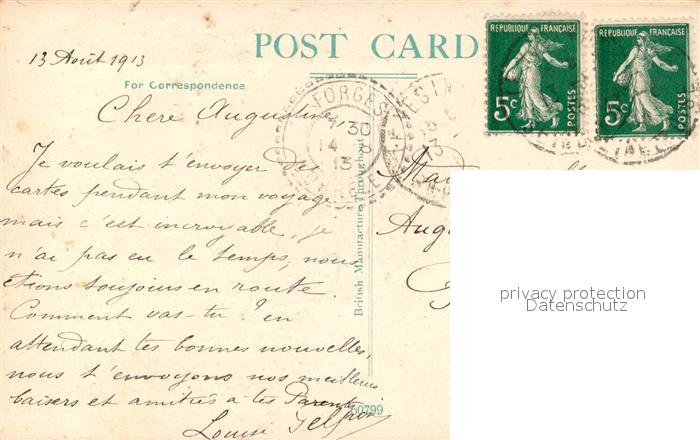 13 Août 1913
POST CARD
REPUBLIQUE FRANÇAISE
5c POSTES
REPUBLIQUE FRANÇAISE
5c POSTES
For Correspondence
FORGES
7 30
14 8
13
Chere Augustine,
Je voulais t'envoyer des
cartes pendant mon voyage
mais c'est incroyable, je
n'ai pas eu le temps, nous
étions toujours en route.
Comment vas-tu ? en
attendant tes bonnes nouvelles,
nous t'envoyons nos meilleurs
baisers et amitiés à tes Parents
Louise
British Manufacture Throughout
50799
Aug
privacy protection
Datenschutz